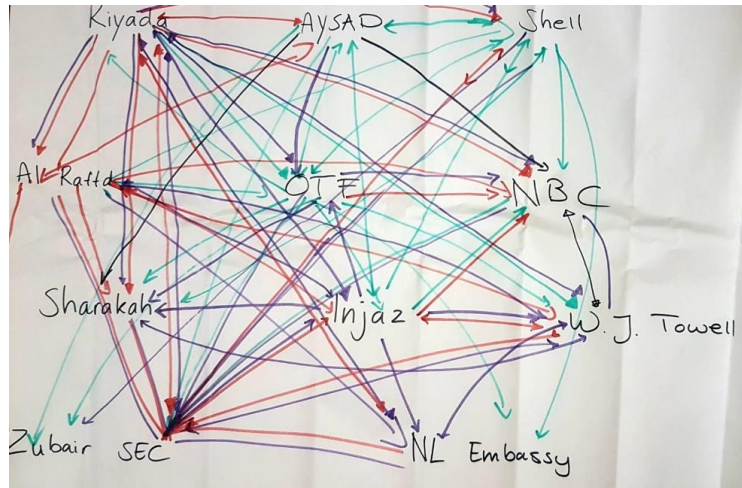 Kiyada AYSAD Shell
Al Raffd OTF NBC
Sharakah Injaz W. J. Towell
Zubair SEC NL Embassy